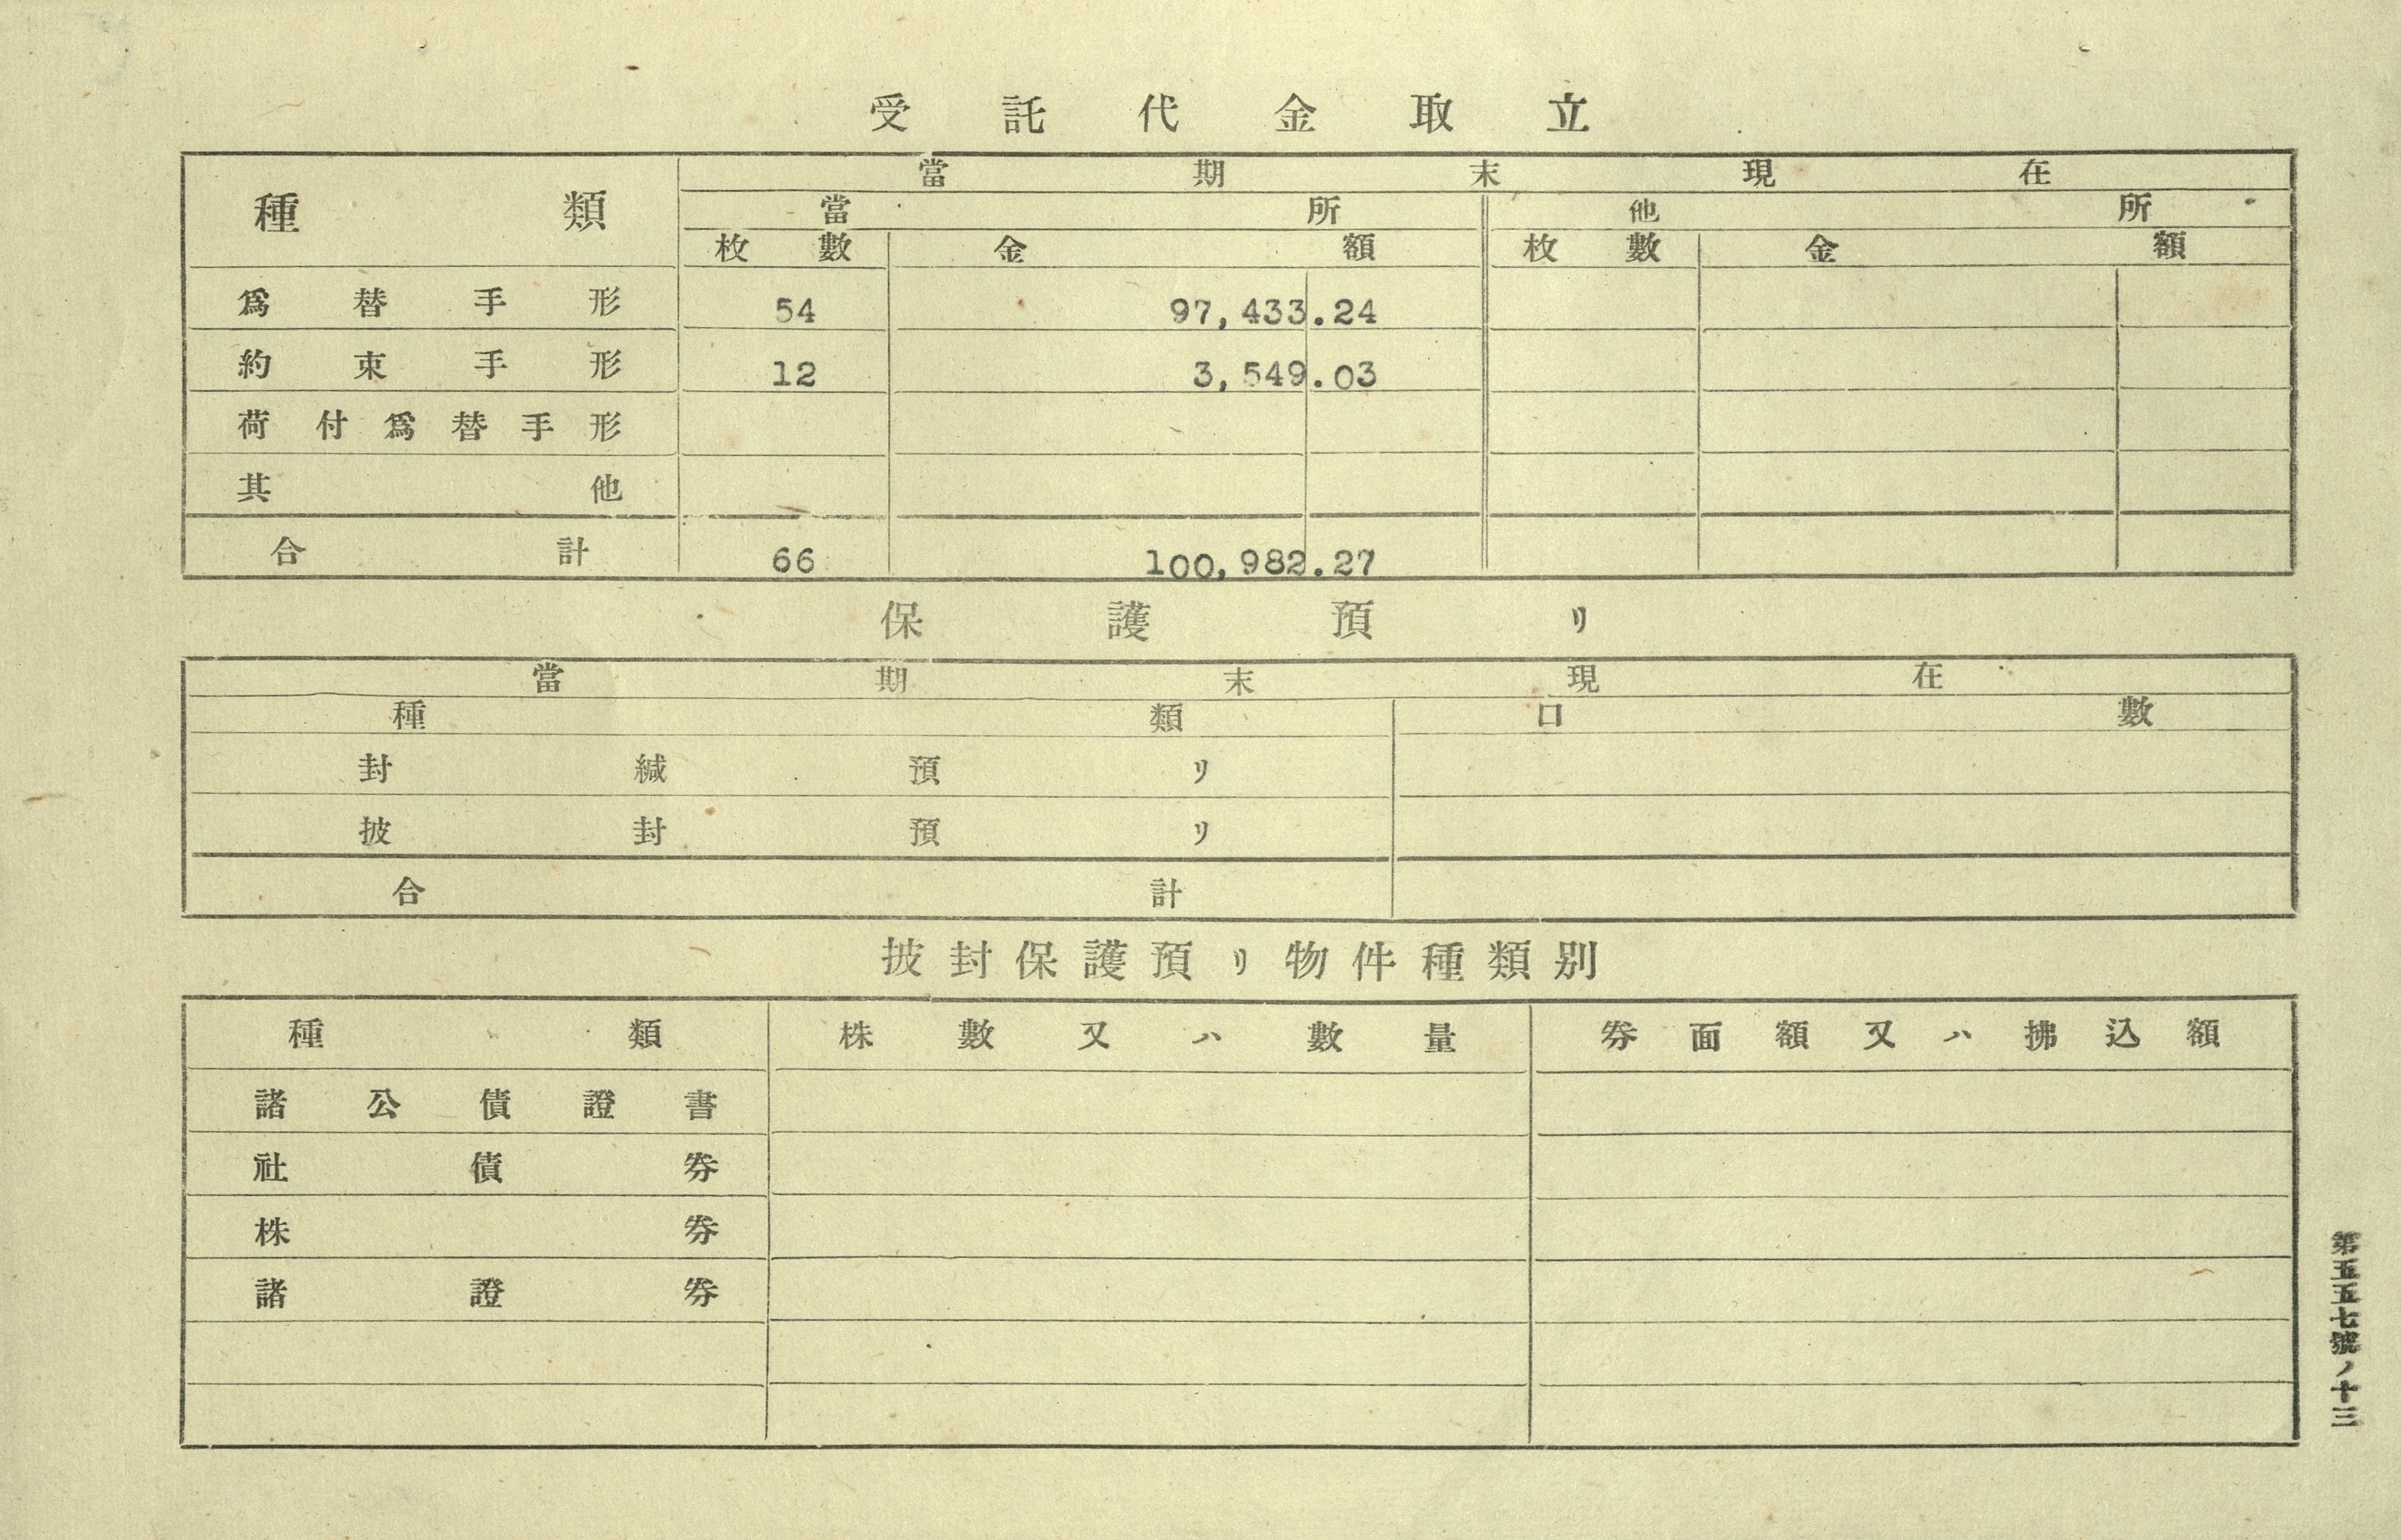 受託代金取立
種類 當期末現在
當所 他所
枚數 金額 枚數 金額
爲替手形 54 97,433.24
約束手形 12 3,549.03
荷付爲替手形
其他
合計 66 100,982.27
保護預リ
當期末現在
種類 口數
封緘預リ
披封預リ
合計
披封保護預リ物件種類別
種類 株數又ハ數量 券面額又ハ拂込額
諸公債證書
社債券
株券
諸證券
第五五七號ノ十三